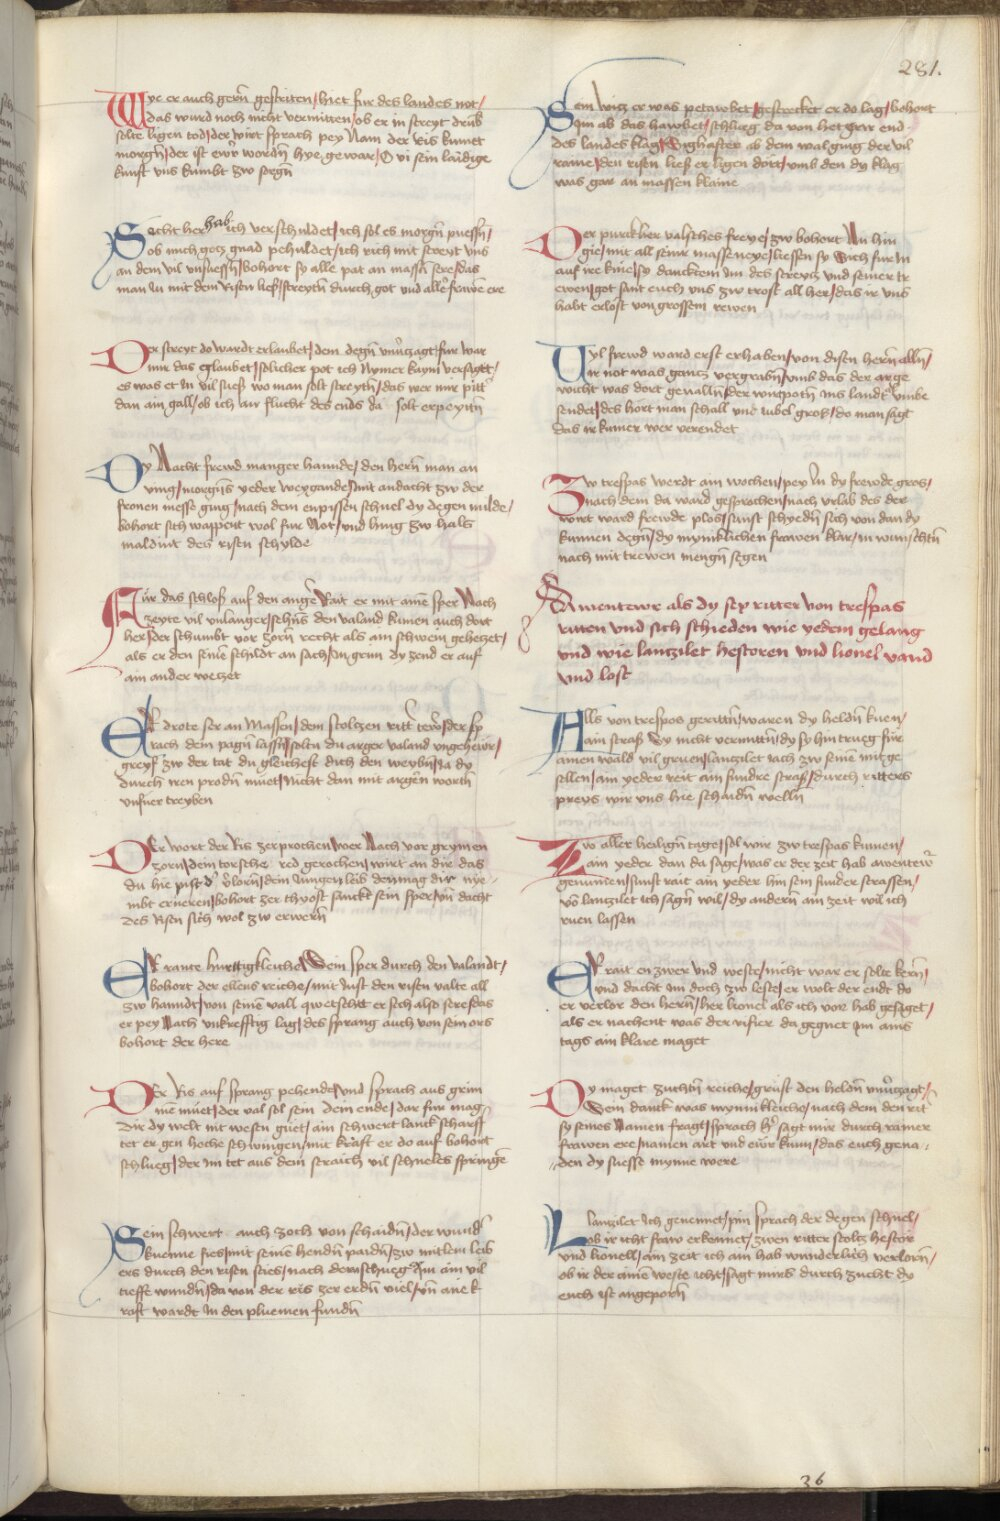 281.
Wye er auch gern̄ gestriten / hiet fur des landes not /
das wurd noch nicht vermitten / ob er in streyt drub
solte ligen tod / der wirt sprach pey Nam der Ris kumet
morgn̄ / der ist ewr̄ wordn̄ hye gewar / O wi sein lādige
kunst vns kumbt zw sorgn̄
Sacht her hab ich verschuldet / ich sol es morgn̄ puessn̄ /
ob mich gotz gnad pehuldet / ich vich mit streyt vns
an dem vil vnsuessn̄ / bohort sy alle pat an massn̄ sere / das
man In mit dem Risen lies / streytn̄ durch got vnd alle frawē ere
Der streyt do wardt erlaubet / dem degn̄ vnv̄tzagt / fur war
mir das eglaubet / solicher pot ich Nymer kaym versaget /
es was et In vil sues wo man solt streytn̄ / das wer mir pitt̄
dan ain gall / ob ich aur flucht des ends da solt erpeytn̄
Dy Nacht frewd manger hannde / den hern̄ man an
ving / morgn̄s yeder weygande / mit andacht zw der
fronen messe ging / nach dem enpissen schuel dy degen milde /
bohort sich wappent wol fur Not / vnd hing zw hals
maldint des risen schylde
Für das schlos auf den angē Rait er mit ainē sper Nach
zeyte vil vnlanger / sehn̄s den valand kumen auch dort
her / der schumbt vor zorn̄ recht als ain schwein gehetzet /
als er den seinē schildt an sach / In grim dy zend er auf
ain ander wetzet
Er drote ser an Massen / dem stoltzen ritt̄ tewr̄ / der sp
rach dem pagn̄ lassn̄ / soltu du arger valand vngehewr̄ /
greyf zw der tat du gleichest dich den weybn̄ / Ia dy
durch iren prodn̄ muet / nicht dan mit argen wortn̄
vnfuer treyben
Der wort der Ris zersprochen / wer Nach vor grymen
zorn / dein torsche red gerochen / wirt an dir das
du hie pist d' v̄lorn / dein Iunger leib den mag dir nye
nibt erneren / bohort zer thyost sanckt sein sper / vn̄ dacht
Des Risen sich wol zw erwern̄
Er rante hurttigkleiche / Sein sper durch den valandt /
bohort der ellens reiche / mit Iust den risen valte all
zw hanndt / von seinē vall qwetschet er sich also sere / das
er pey Nach vnkrefftig lag / des sprang auch von sein ors
bohort der here
Der Ris auf sprang pehende / vnd sprach aus grim
me muet / der val sol sein dein ende / dar fur mag
Dir dy welt mit wesen guet / ain schwert lanck scharff
tet er gen hoche schwingen / mit kraft er do auf bohort
schlueg / der im tet aus dem straich vil schnelles springē
Sein schwert auch zoch von schaidn̄ / der wund̄
kuenne fies / mit seinē hendn̄ paidn̄ / zw mitlem leib
ers durch den risen sties / nach dem schueg Im ain vil
tieffe wundn̄ / da von der ris zer erdn̄ viel / vn̄ ane k
raft wardt In den pluemen fundn̄
Sein witz er was petawbet / gestrecket er do lag / bohort
Im ab das hawbet / schlueg da von het gar end
des landes klag / Sighafter ab dem wal ging der vil
raine / den risen lies er ligen dort / vmb den dy klag
was gar an massen klaine
Der purckher valsches freye / zw bohort Nu hin
gie / mit all seinr masseneye / liessen sy Sich fur In
auf ire knie / sy danckten Im des streytz vnd seiner tr
ewen / got sant euch vns zw trost all her / das ir vns
habt erlost von grossem rewen
Vyl frewd ward erst erhaben / von disen hern̄ alln̄ /
ir not was gantz vergrabn̄ / vmb das der arge
wicht was dort gevalln̄ / der wirt potn̄ ins landt vmbe
sendet / des hort man schall vnd Iubel gros / do man sagt
das ir kumer wer verendet
Zw trespas werdt ain wochen / pey In dy frewde gros /
nach dem da ward gesprochen / nach vrlab des der
wirt ward frewde plos / sunst schyedn̄ sich von dan dy
kuenen degn̄ / dy mynnklichen frawen klar / in wunschtn̄
nach mit trewen mengn̄ segen
Awentewr als dy sex ritter von trespas
riten vnd sich schieden wie yedem gelang
vnd wie lantzilet hestoren vnd lionel vand
vnd lost
Alls von trespos geritn̄ / waren dy heldn̄ kuen /
ain stras Sy nicht vermittn̄ / dy sy hin trueg fur
ainen wald vil gruen / lantzilet sach zw seinē mitge
sellen / ain yeder reit ain sundre stras / durch ritters
preys wir vns hie schaidn̄ welln̄
Zw aller heilign̄ tage / sol wir zw trespas kumen /
ain yeder dan da sage / was er der zeit hab awentewr̄
genumen / sunst rait ain yeder hin sein sunder strassen /
vō lantzilet ich sagn̄ wil / dy andern̄ ain zeit wil ich
ruen lassen
Er rait en zwer vnd weste / nicht war er solte kern̄ /
vnd dacht im doch zw leste / er wolt der endt do
er verlor den hern̄ / her lionel als ich vor hab gesaget /
als er nachent was der rifier da gegnet im ains
tags ain klare maget
Dy maget zuchtn̄ reiche / grust den heldn̄ vnv̄tzagt /
Sein danck was mynnikleiche / nach dem den rit̄
sy seines Namen fragt / sprach h̄ sagt mir durch rainer
frawen ere / namen art vnd ewr kunn / das euch gena
den dy suesse mynne were
Lantzilet Ich genennet / pin sprach der degen schnel /
ob ir icht fraw erkennet / zwen ritter stoltz hestor
vnd lionell / ain zeit ich ain hab wunderlich verlorn̄ /
ob ir der ainē weste icht / sagt mirs durch zucht dy
euch ist angeporn̄
36